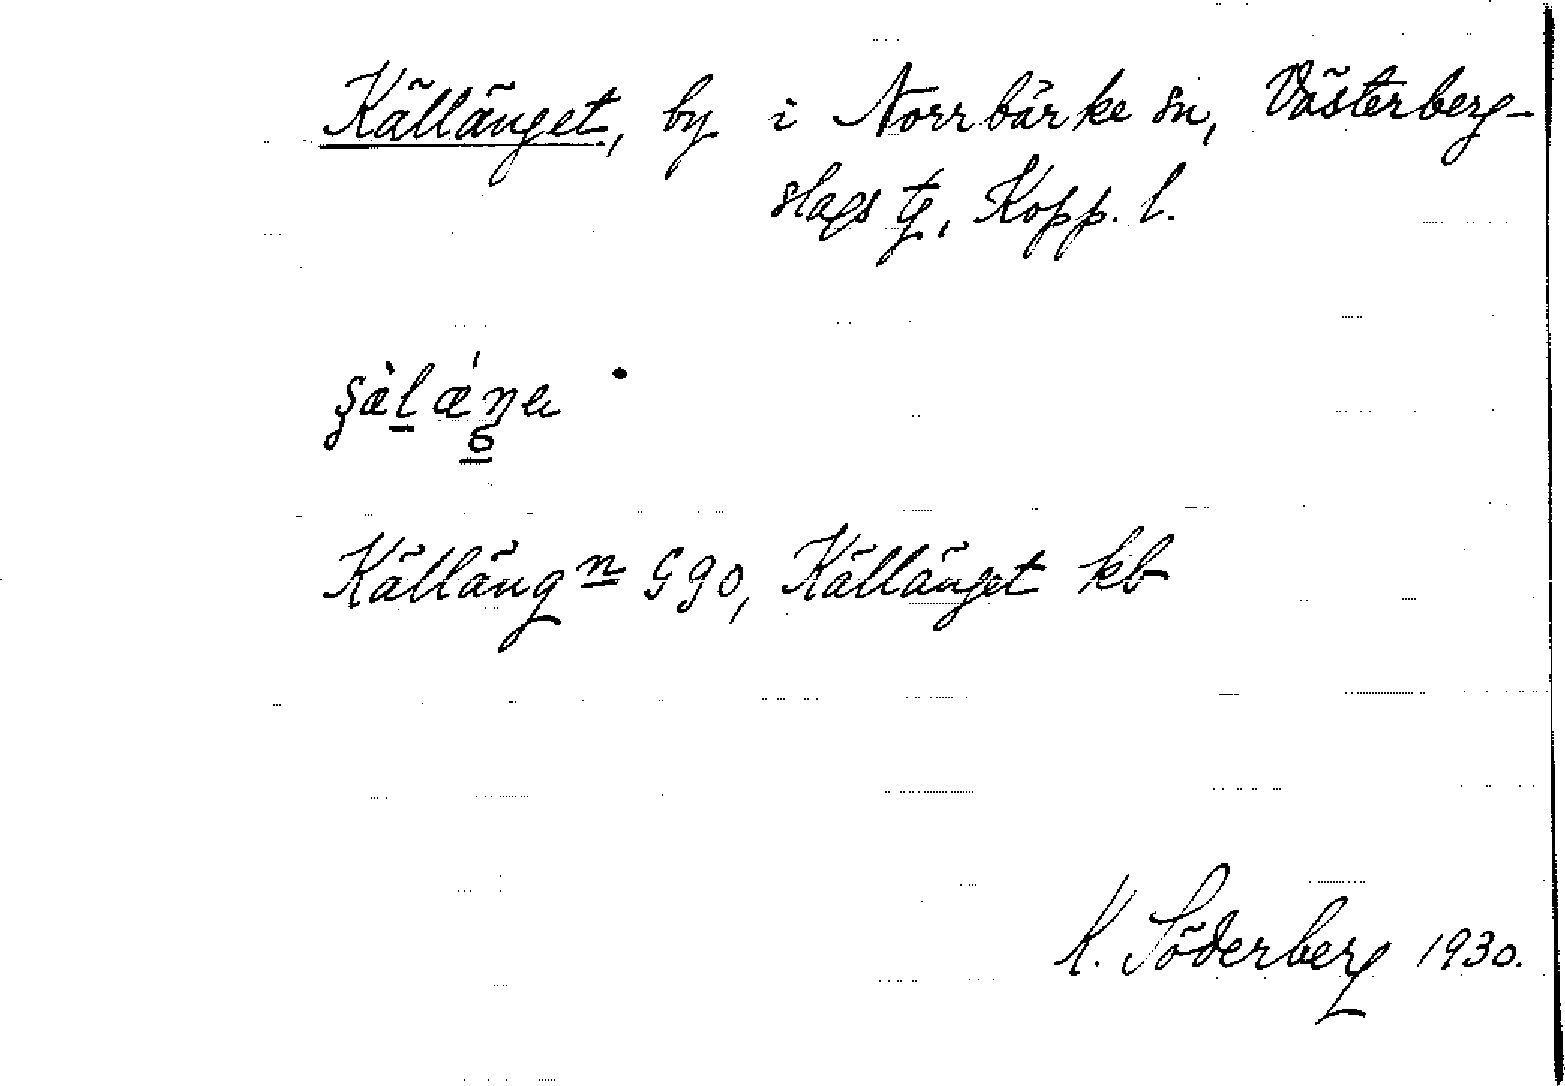 Källänget, by i Norrbärke sn, Västerberg-
slags tg, Kopp. l.
Källäng n Ggo, Källänget kb
K. Söderberg 1930.